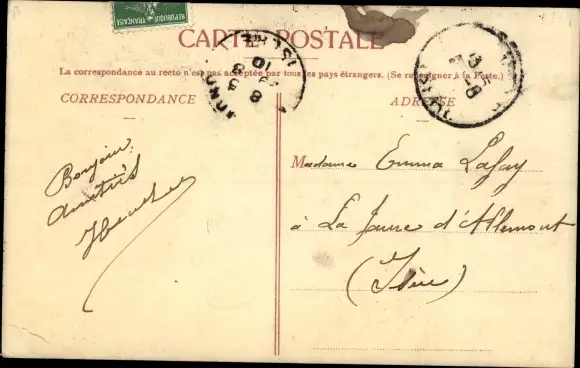 REPUBLIQUE FRANÇAISE
CARTE POSTALE
La correspondance au recto n'est pas acceptée par tous les pays étrangers. (Se renseigner à la Poste.)
CORRESPONDANCE
ADRESSE
Bonjour
amitiés
Madame Emma Lafay
à La Jaure d'Allemont
(Isère)